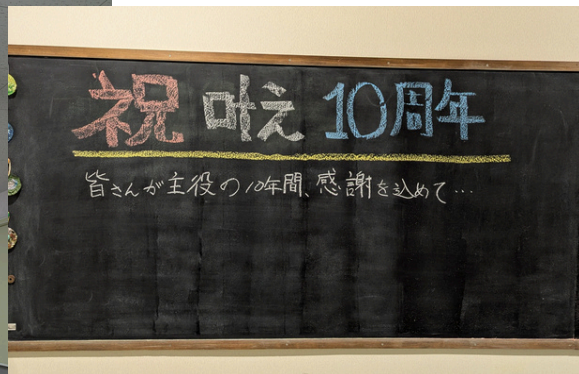 祝 叶え 10周年
皆さんが主役の10年間、感謝を込めて…